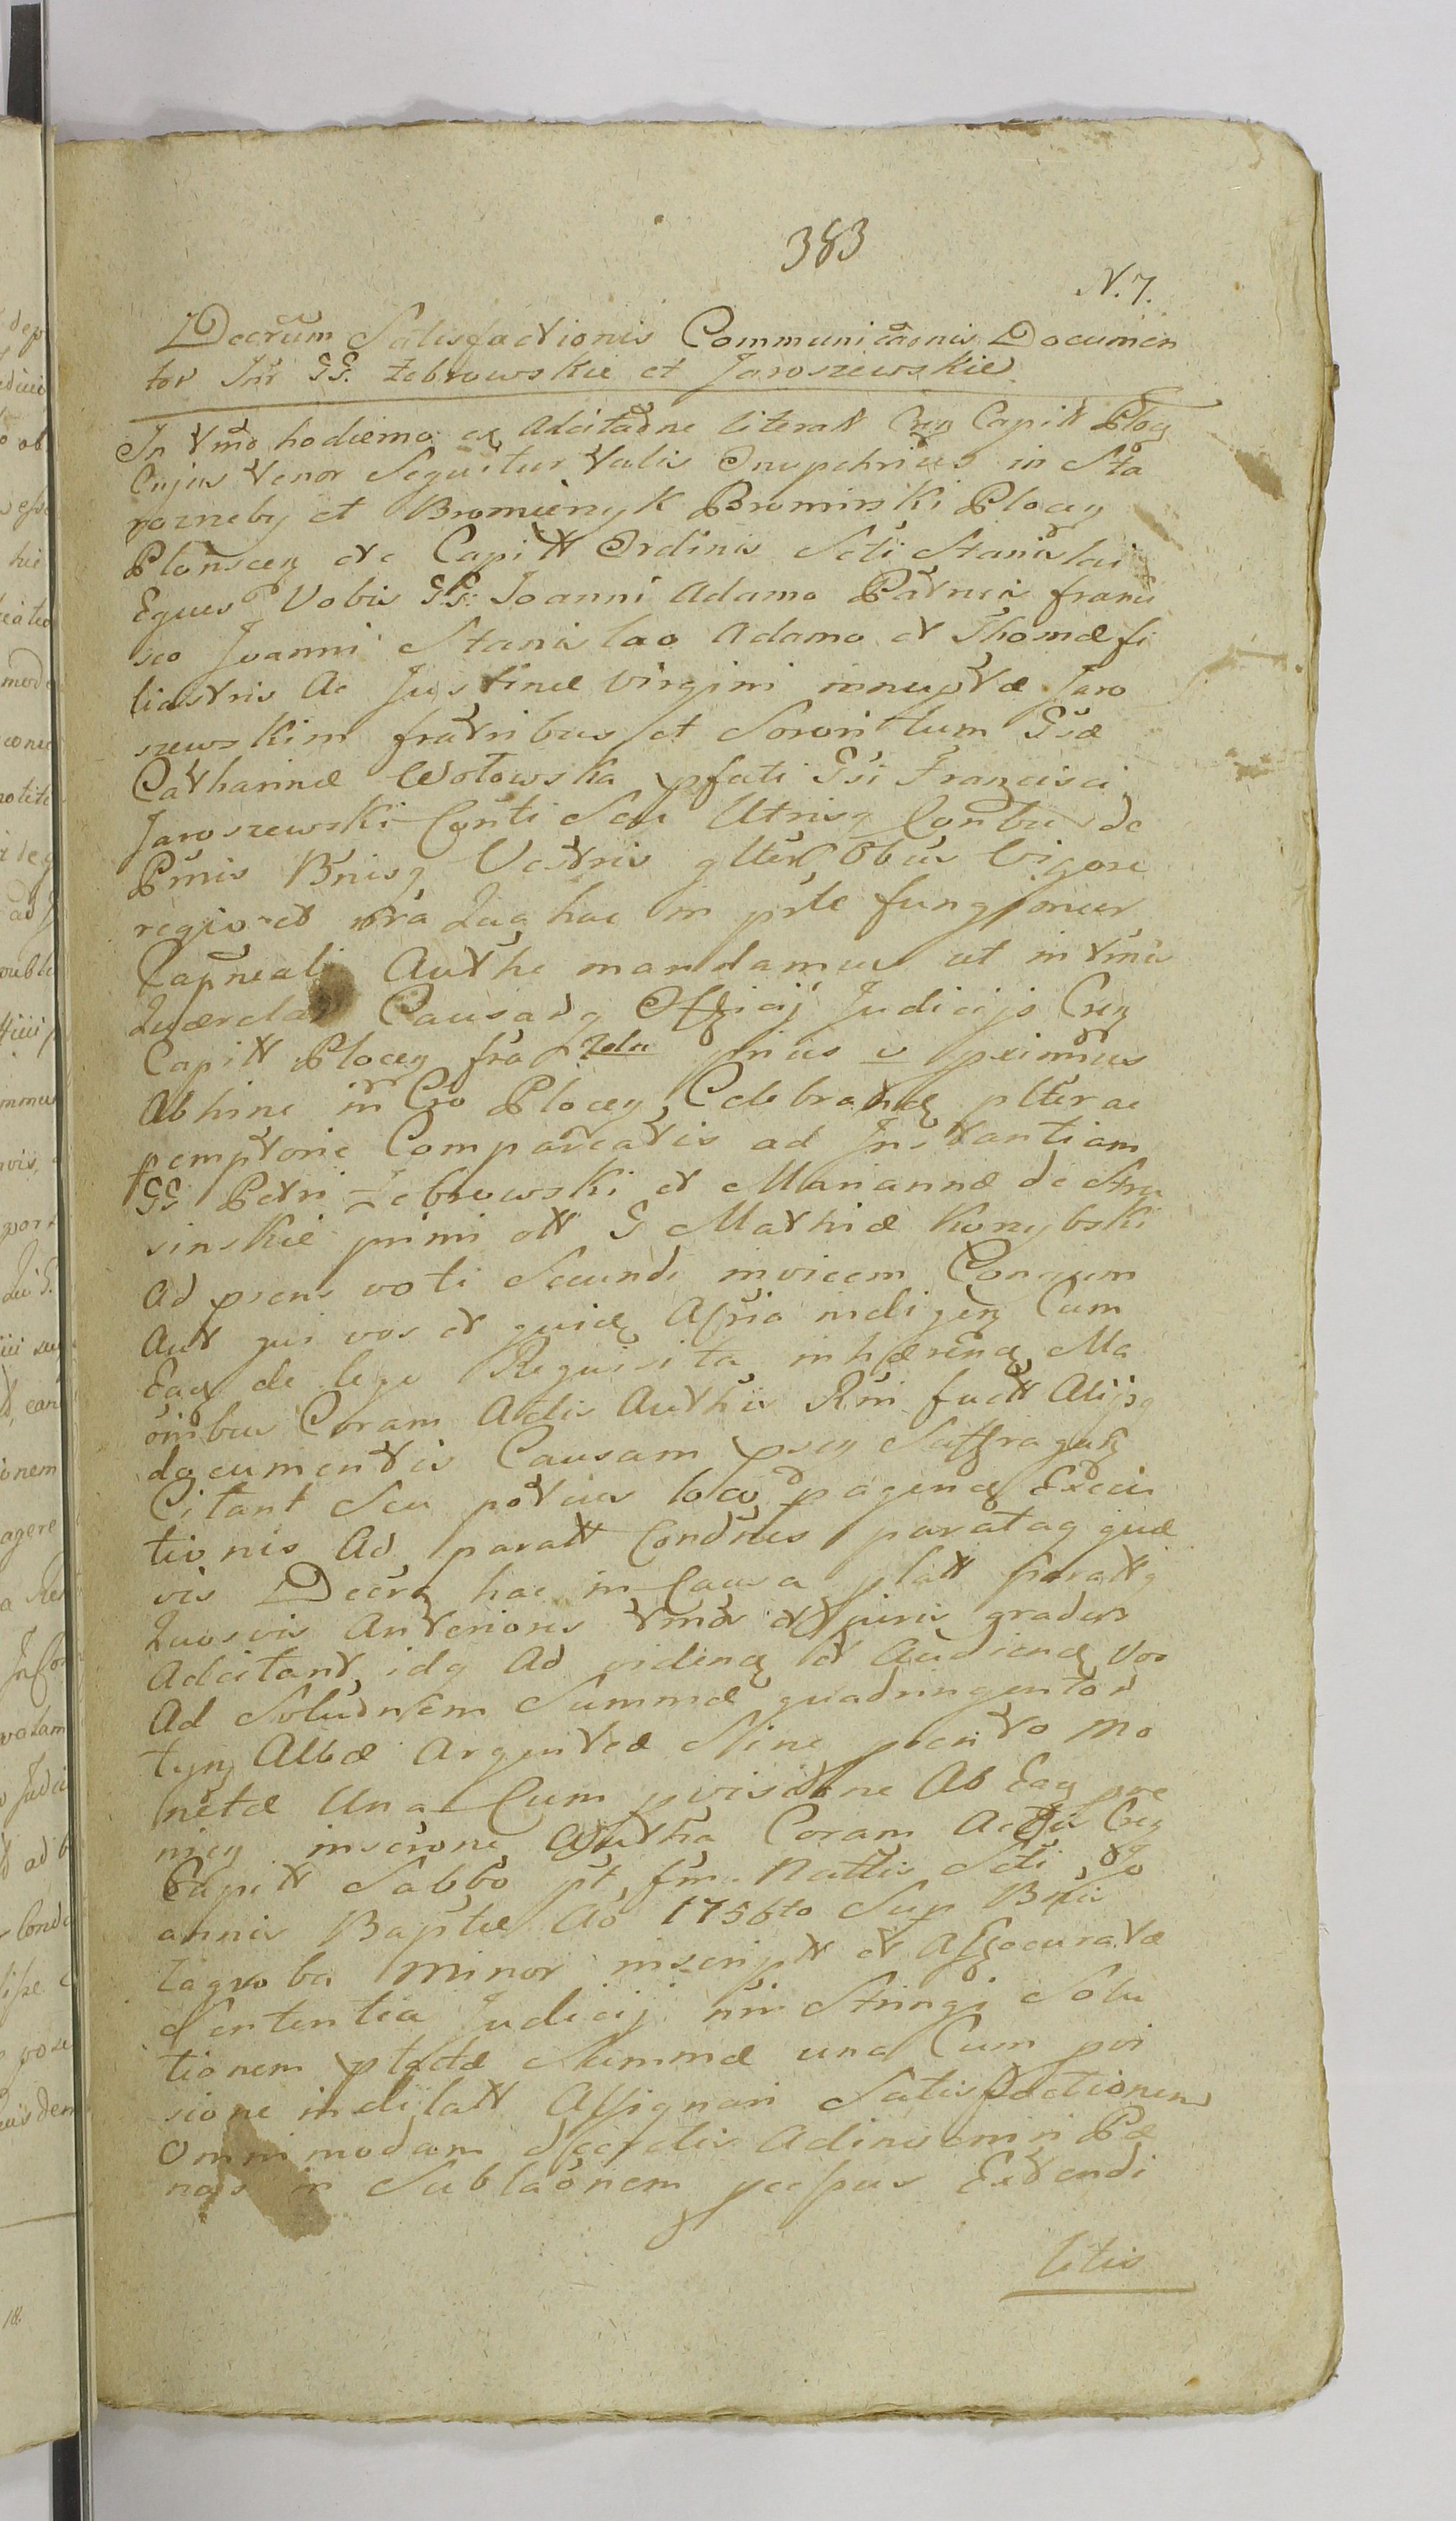 383
N. 7.
Decrum Satisfactionis Communicaonis Documen
tor Inr GG. Zebrowskie et Jaroszewskie
In tmo hodierno ex Adcitaone literali Cren Capitt Plocen
Cujus tenor Sequitur talis Onuphrius in Sta
rozneby et Bromierzyk Bromirski Plocen
Plonscen etc Capitt Ordinis Scti Stanislai
Eques Vobis GG: Joanni Adamo Patruis franci
sco Joanni Stanislao Adamo et Thomæ fi
liastris Ac Justinæ Virgini innuptæ Jaro
szewskim fratribus et Sorori tum Gsæ
Catharinæ Wołowska pfati Gsi Francisci
Jaroszewski Conti Seu Utrisq Conbus de
Psnis Bnisq Vestris glter Obus Vigore
regia et nra Qua hac in prte fungimur
Capneali Authe mandamus ut in tmis
Querelar Causarq Officij Judicijs Cren
Capitt Plocen fra 2da prius v pximius
Abhinc in Cro Plocen Celebrand plter ac
pemptorie Compareatis ad Instantiam
GG Petri Zebrowski et Mariannæ de Stru
sinskie primi ott G Mathiæ Korzybski
Ad præns voti Secundi invicem Congum
Aut qui vos et quid Afria indigen Cum
Eaq de lege Requisita inhæren Ma
oibus Coram Actis Authis Rni factt Alijsq
documentis Causam psen Suffragan
Citant Seu potius loco pagend Execu
tionis Ad paratt Condnes paratag quæ
vis Decra hac in Causa platt paratq
Quosvis Anteriores tmos et juris gradus
Adcitant idq Ad vidend et Audiend Vos
Ad Solutnem Summæ quadringentor
tynf Albæ Argenteæ Sine præn to Mo
netæ Una Cum pvisione Ab Eaq pve
nien inscrone Autha Coram Actis Cren
Capitt Sabbo pt fm Nattis Scti Jo
annis Baptæ Ao 1756to Sup Bnis
Zagroba Minor inscriptt et Assecuratæ
Sententia Judicij nri Stringi Solu
tionem platæ Summæ una Cum pvi
sione indilatt Assignari Satisfactionem
Omnimodam decretis Adinveniri Pæ
nas in Sublaonem pcessus Extendi
litis